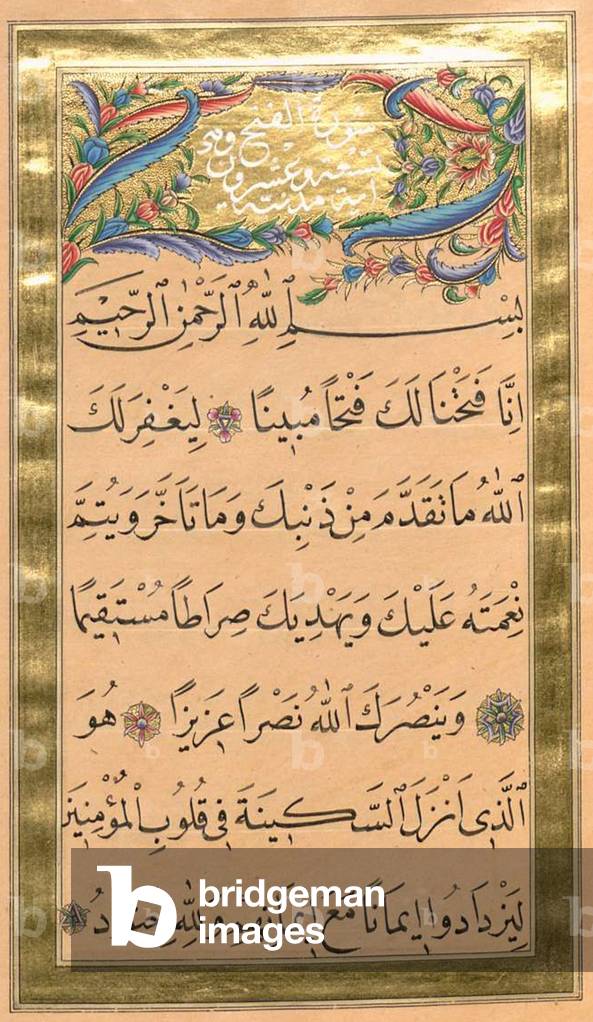 سورة الفتح وهي
تسعة وعشرون
آية مدنية
بِسْمِ ٱللهِ ٱلرَّحْمٰنِ ٱلرَّحِيمِ
اِنَّا فَتَحْنَا لَكَ فَتْحًا مُبِينًا لِيَغْفِرَ لَكَ
ٱللهُ مَا تَقَدَّمَ مِنْ ذَنْبِكَ وَمَا تَاَخَّرَ وَيُتِمَّ
نِعْمَتَهُ عَلَيْكَ وَيَهْدِيَكَ صِرَاطًا مُسْتَقِيمًا
وَيَنْصُرَكَ ٱللهُ نَصْرًا عَزِيزًا هُوَ
ٱلَّذِى اَنْزَلَ ٱلسَّكِينَةَ فِى قُلُوبِ ٱلْمُؤْمِنِينَ
لِيَزْدَادُوا اِيمَانًا مَعَ اِيمَانِهِمْ وَلِلّٰهِ جُنُودُ
bridgeman
images